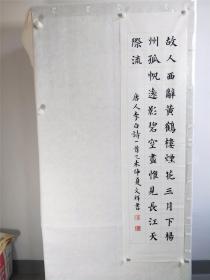 故人西辭黃鶴樓煙花三月下楊
州孤帆遠影碧空盡惟見長江天
際流
唐人李白詩一首乙未仲夏文祥書